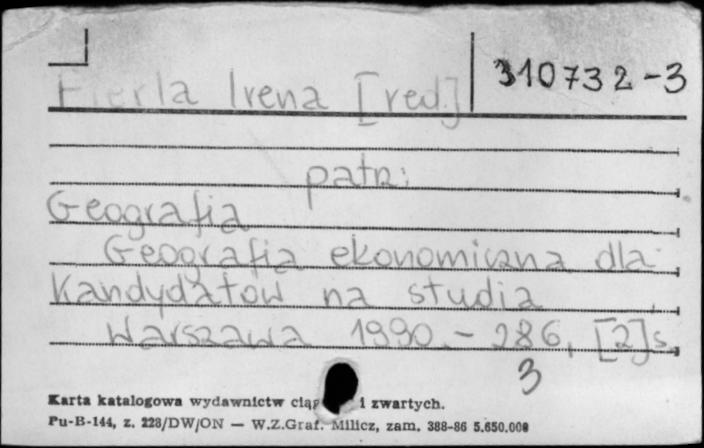 Fierla Irena [red.] 310732-3
patrz:
Geografia
Geografia ekonomiczna dla
kandydatów na studia
Warszawa 1990.- 286, [2]s.
3
Karta katalogowa wydawnictw i zwartych.
Pu-B-144, z. 228/DW/ON — W.Z.Graf. Milicz, zam. 388-86 5.650.000